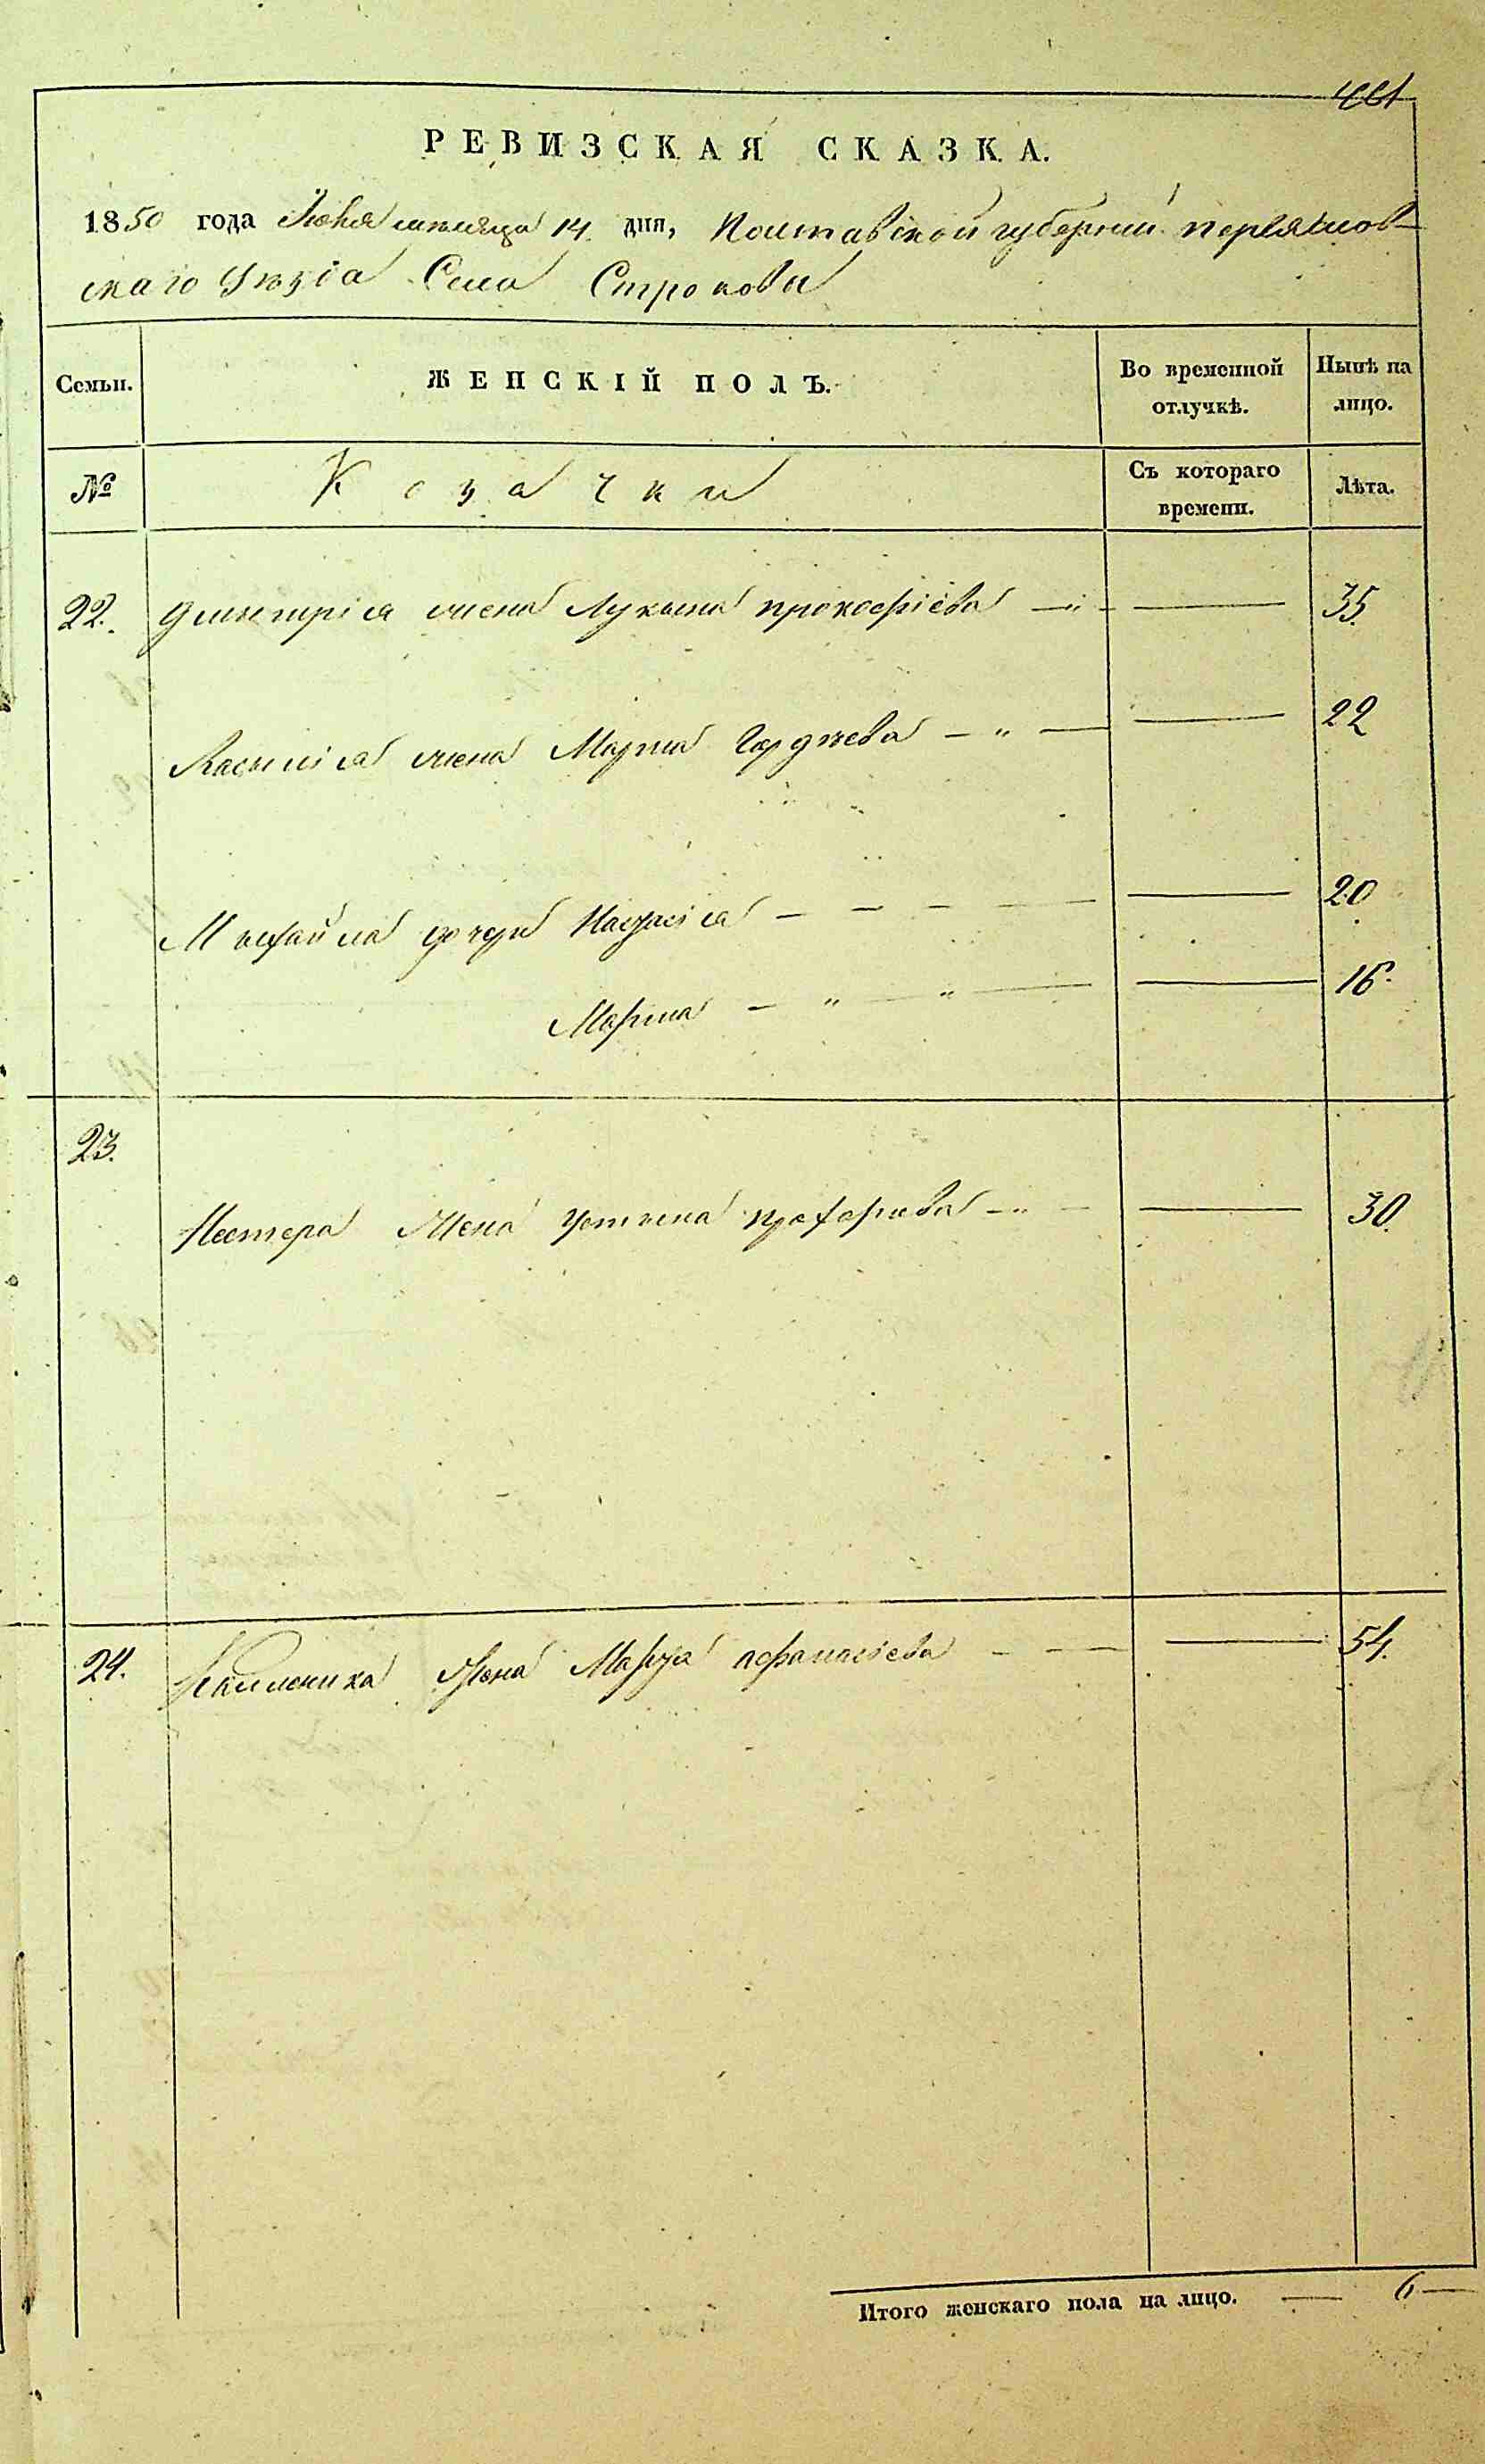 461
РЕВИЗСКАЯ СКАЗКА.
1850 года Июня месяца 14 дня, Полтавской губернии Переяслов-
скаго уезда Села Строковы
Семьи.
ЖЕНСКІЙ ПОЛЪ.
Во временной отлучкѣ.
Нынѣ на лицо.
№
Козачки
Съ котораго времени.
Лѣта.
22. Дмитрія жена Лукьяна прокофіева 35
Василія жена Марина Гордѣева 22
Михайла дочери Настасія 20
Марина 16
23.
Нестера Жена Устина прохорова 30
24. Жена Марфа афанасіева 54.
Итого женскаго пола на лицо. 6